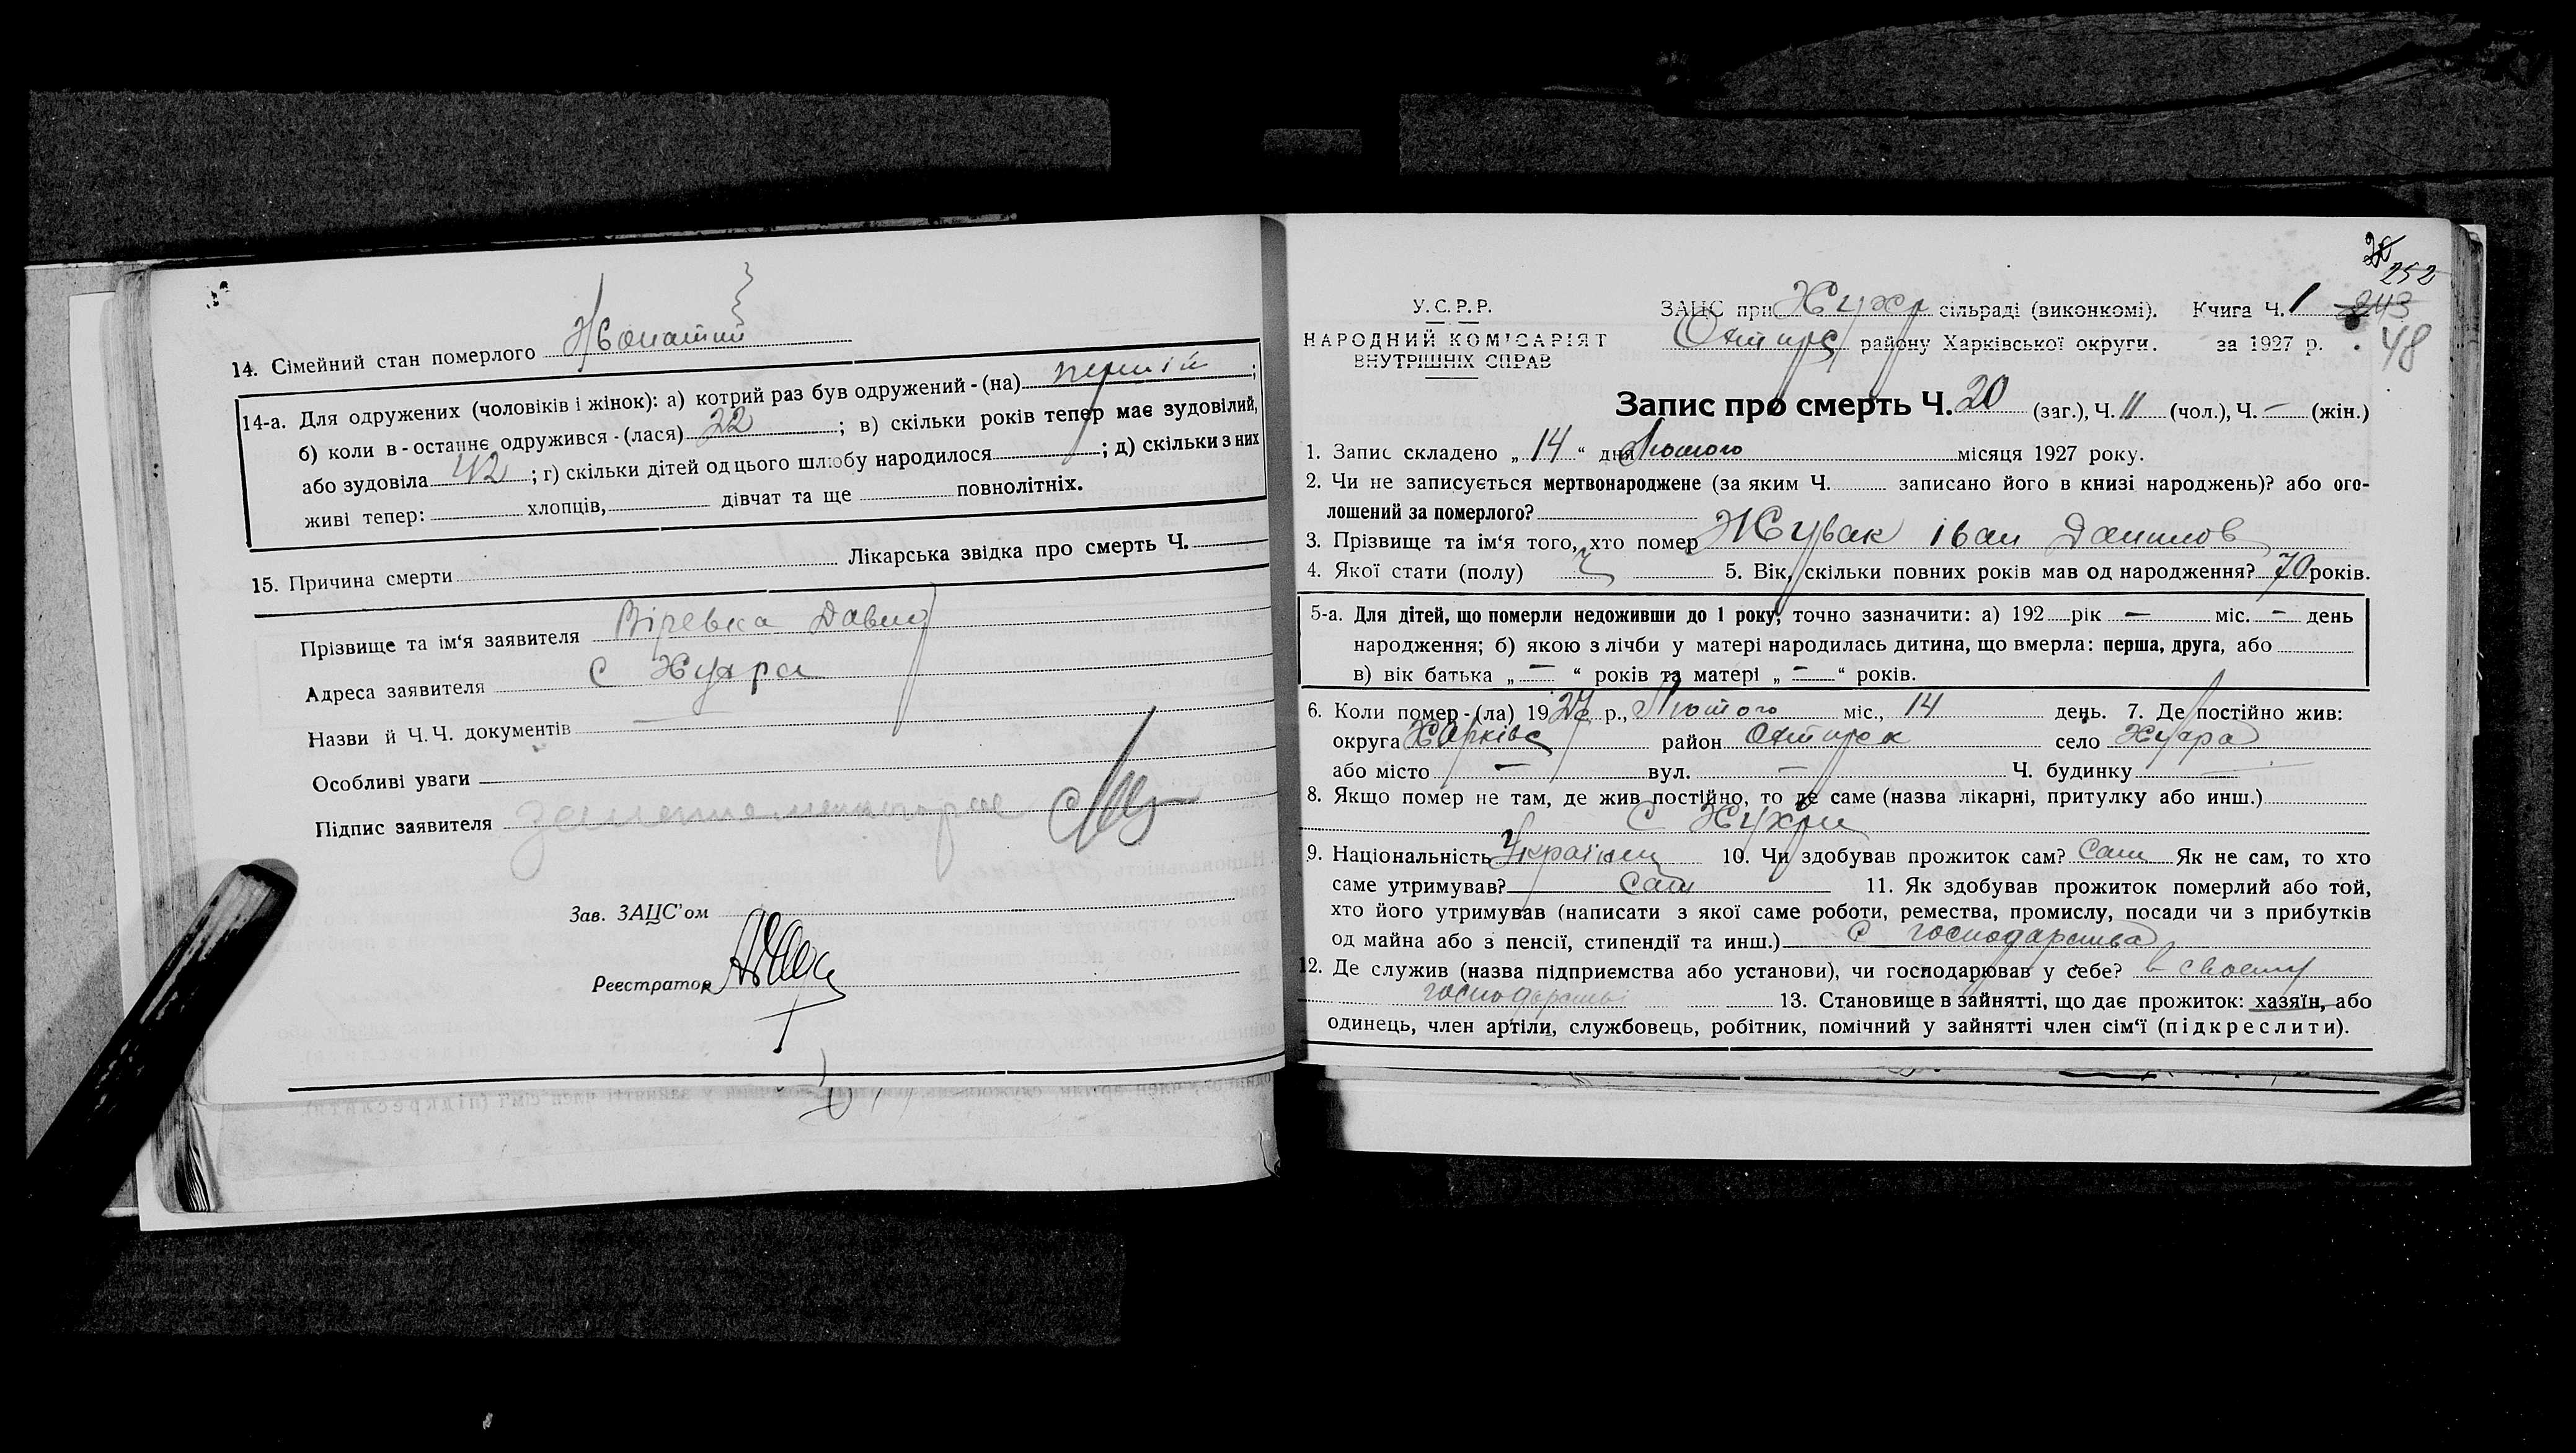 14. Сімейний стан померлого Жонатий
14-а. Для одружених (чоловіків і жінок): а) котрий раз був одружений - (на) перший ;
б) коли в - останнє одружився - (лася) 22 ; в) скільки років тепер має зудовілий,
або зудовіла 42 ; г) скільки дітей од цього шлюбу народилося ; д) скільки з них
живі тепер: хлопців, дівчат та ще повнолітніх.
15. Причина смерти Лікарська звідка про смерть Ч.
Прізвище та ім'я заявителя Віревка Давид
Адреса заявителя с Хухра
Назви й Ч.Ч. документів —
Особливі уваги
Підпис заявителя
Зав. ЗАЦС'ом
Реєстратор
20
252
243
48
У.С.Р.Р.
НАРОДНИЙ КОМІСАРІЯТ
ВНУТРІШНІХ СПРАВ
ЗАЦС при Хухр сільраді (виконкомі). Книга Ч. 1
Охтирс району Харківської округи. за 1927 р.
Запис про смерть Ч. 20 (заг.), Ч. 11 (чол.), Ч. — (жін.)
1. Запис складено „ 14 “ дня Лютого місяця 1927 року.
2. Чи не записується мертвонароджене (за яким Ч. записано його в книзі народжень)? або ого-
лошений за померлого?
3. Прізвище та ім'я того, хто помер Жувак іван Данилов
4. Якої стати (полу) ч 5. Вік, скільки повних років мав од народження? 70 років.
5-а. Для дітей, що померли недоживши до 1 року, точно зазначити: а) 192 рік — міс. — день
народження; б) якою з лічби у матері народилась дитина, що вмерла: перша, друга, або
в) вік батька „ — “ років та матері „ — “ років.
6. Коли помер - (ла) 1927 р., Лютого міс., 14 день. 7. Де постійно жив:
округа Харківс район Охтирск село Хухра
або місто — вул. — Ч. будинку —
8. Якщо помер не там, де жив постійно, то де саме (назва лікарні, притулку або инш.)
С Хухри
9. Національність Українец 10. Чи здобував прожиток сам? Сам Як не сам, то хто
саме утримував? Сам 11. Як здобував прожиток померлий або той,
хто його утримував (написати з якої саме роботи, ремества, промислу, посади чи з прибутків
од майна або з пенсії, стипендії та инш.) С господарства
12. Де служив (назва підприємства або установи), чи господарював у себе? в своему
господарстві 13. Становище в зайнятті, що дає прожиток: хазяїн, або
одинець, член артіли, службовець, робітник, помічний у зайнятті член сім'ї (підкреслити).